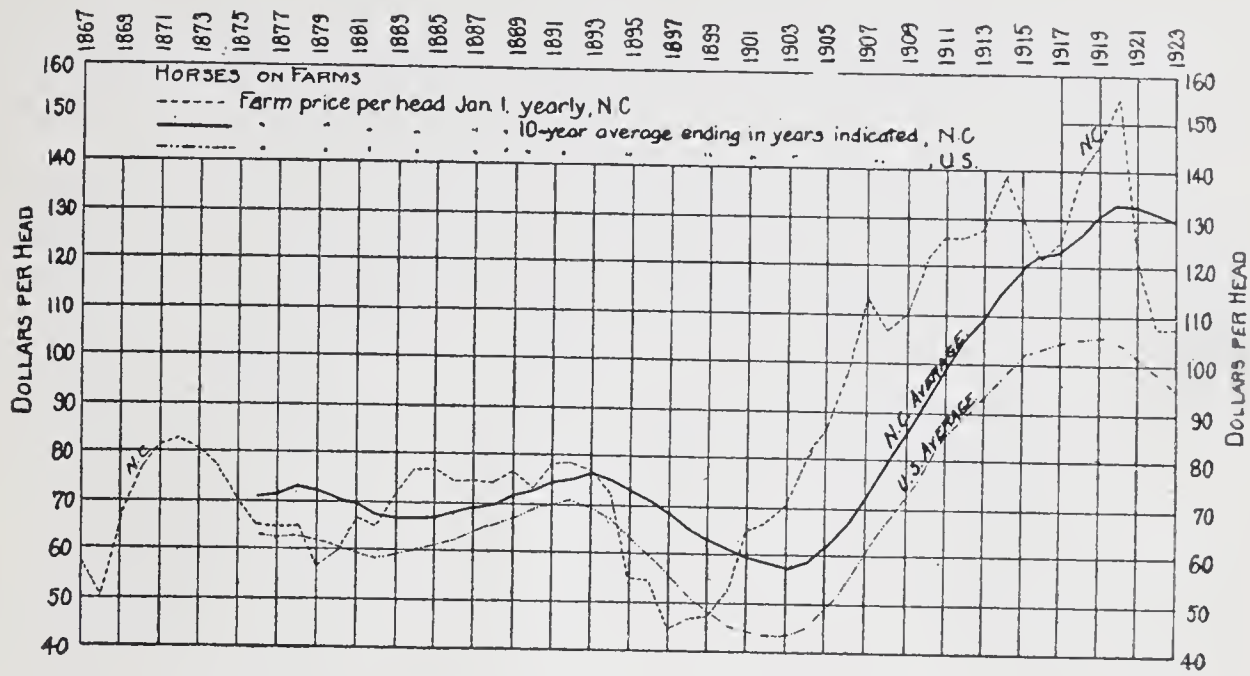 1867 1869 1871 1873 1875 1877 1879 1881 1883 1885 1887 1889 1891 1893 1895 1897 1899 1901 1903 1905 1907 1909 1911 1913 1915 1917 1919 1921 1923
HORSES ON FARMS
Farm price per head Jan. 1. yearly, N.C
10-year average ending in years indicated, N.C
" , U.S.
DOLLARS PER HEAD
160
150
140
130
120
110
100
90
80
70
60
50
40
N.C.
N.C. AVERAGE.
U.S. AVERAGE
N.C.
160
150
140
130
120
110
100
90
80
70
60
50
40
DOLLARS PER HEAD